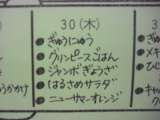 30(木)
ぎゅうにゅう
グリンピースごはん
ジャンボぎょうざ
はるさめサラダ
ニューサマーオレンジ
うかけ
メキ
ひじ
キャ